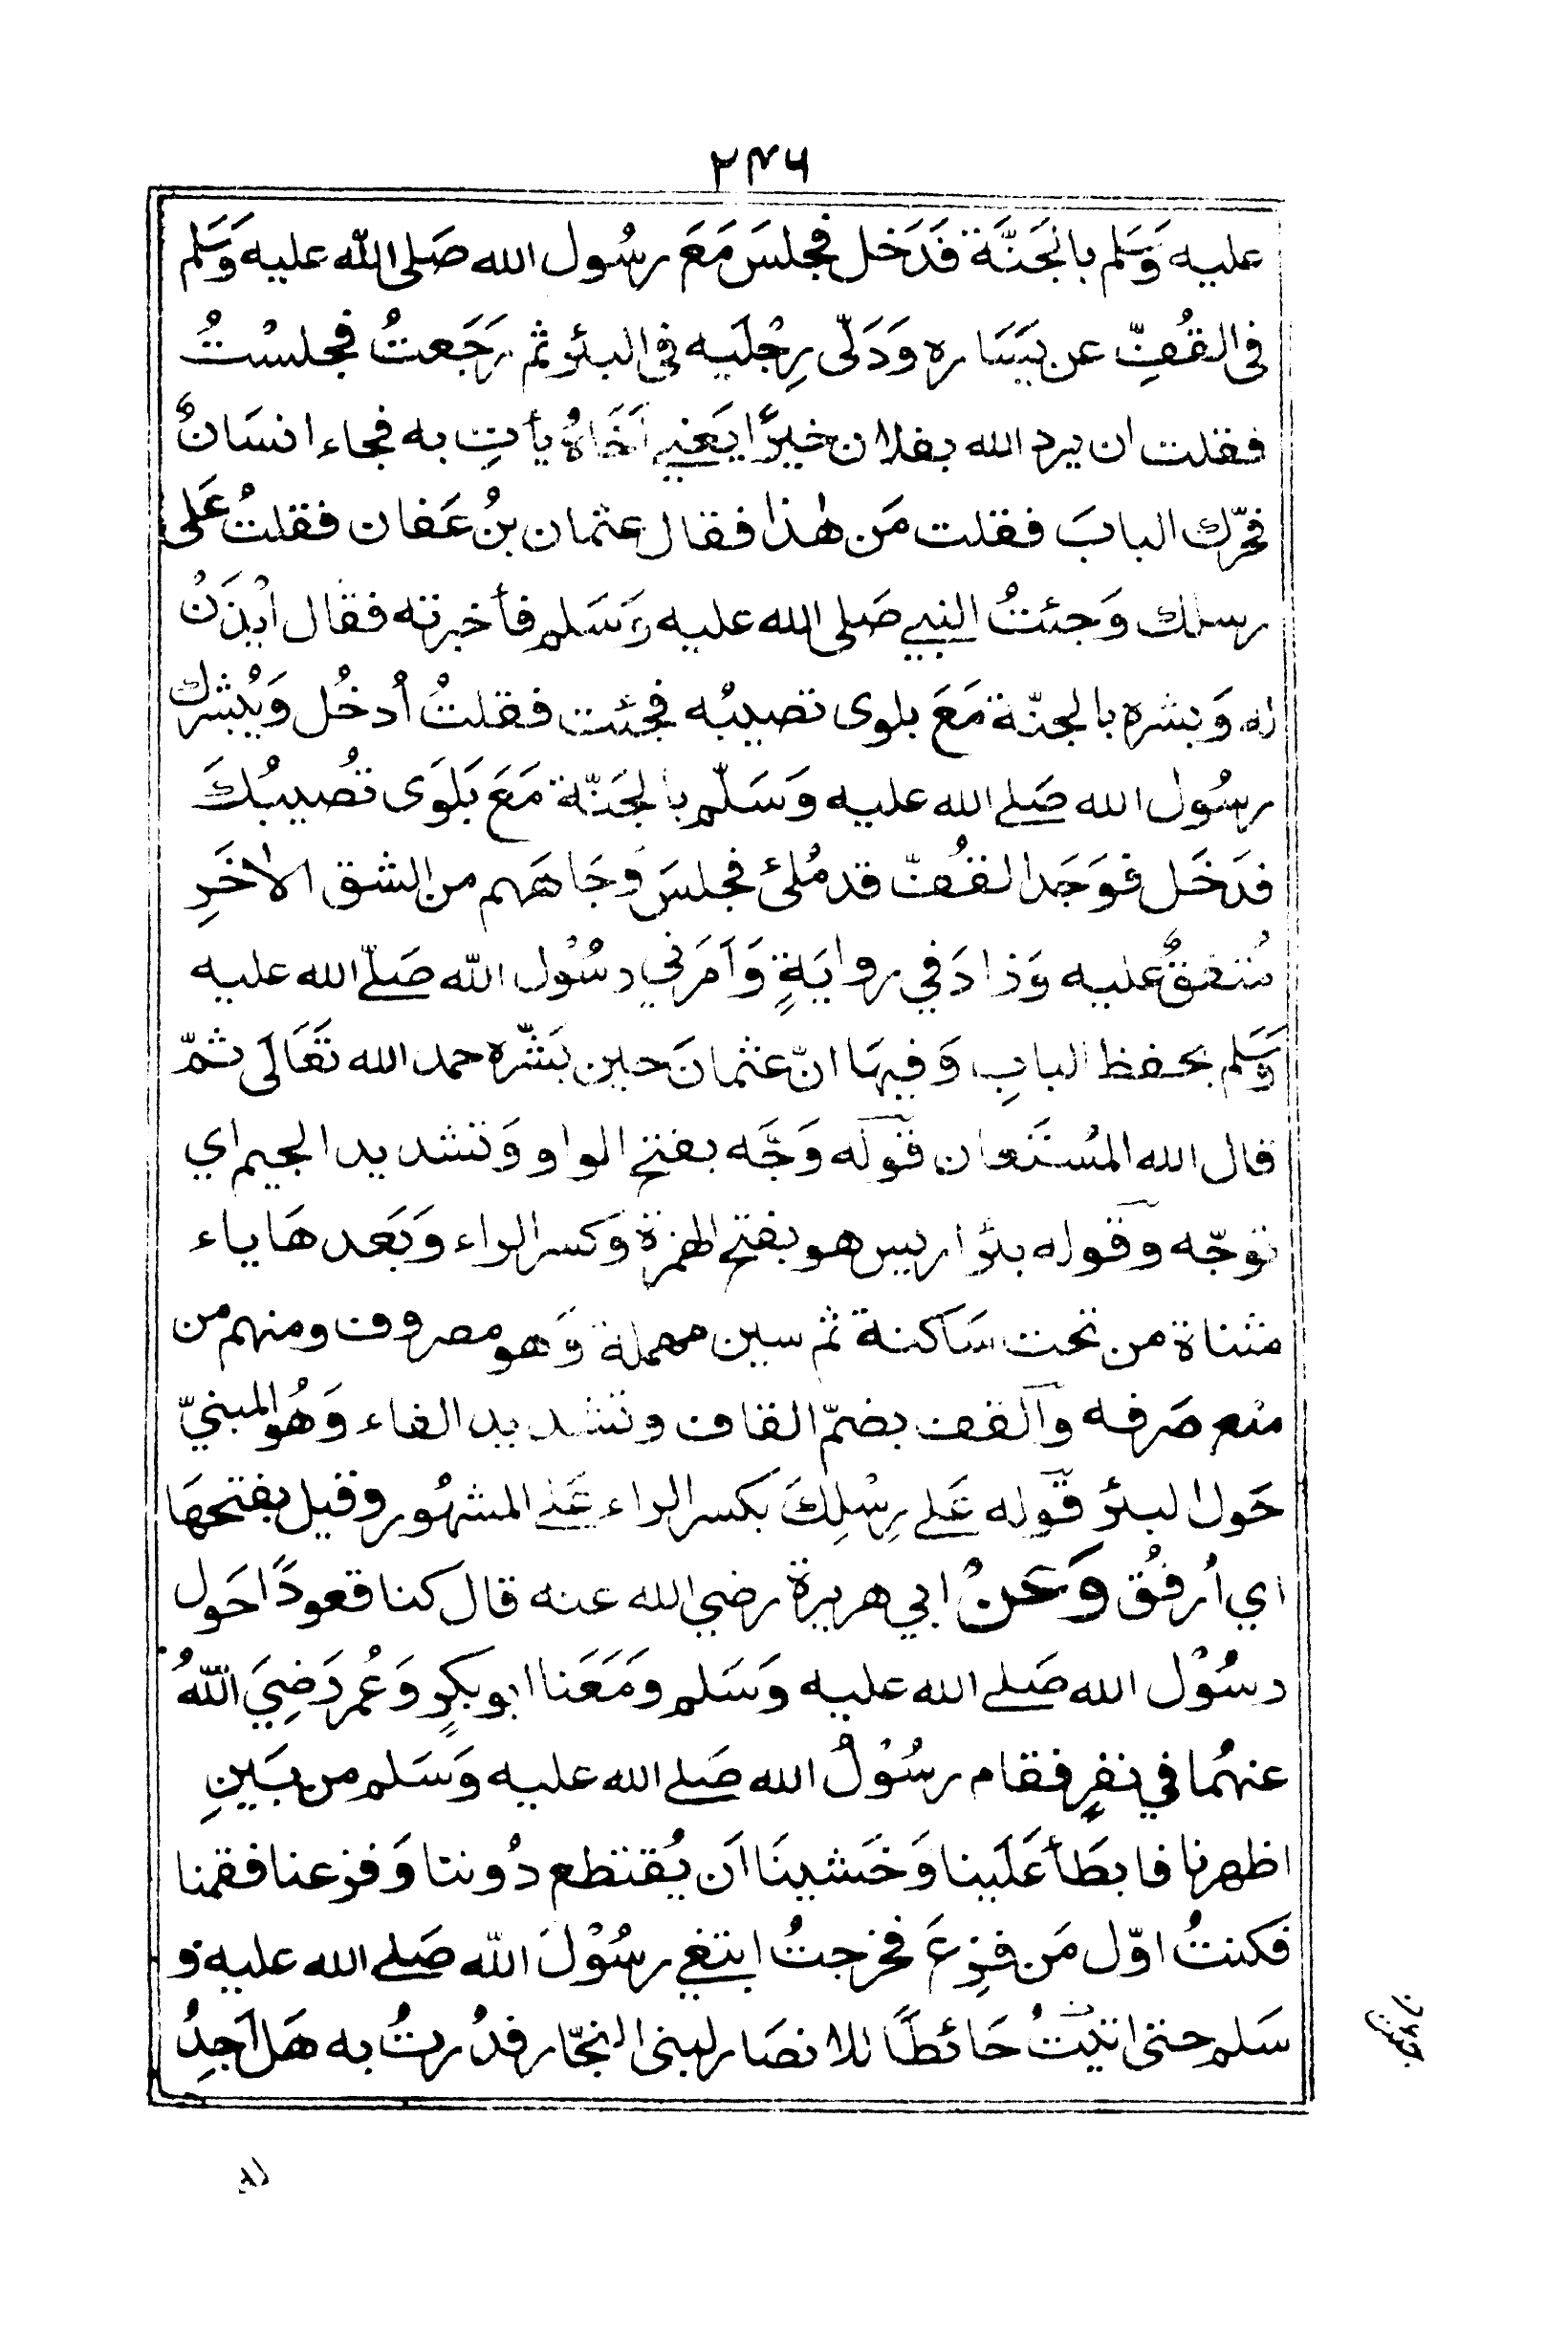 ٢٣٦
عليه وَسَلم بالجَنَّة فَدَخل فجلسَ مَعَ رسُول الله صَلى اللّه عليه وَسَلم
فى القُفِّ عن يَسَاره وَدَلّى رِجْلَيه فى البئر ثم رَجَعتُ فجلسْتُ
فقلت ان يرد الله بفلان خيرًا يَعني اَخَاهُ يأتِ به فجاء انسَانٌ
فحرّك البابَ فقلت مَن هٰذا فقال عثمان بنُ عَفان فقلتُ عَلى
رسلك وَجئتُ النبي صَلى الله عليه وَسَلم فأخبرته فقال ايْذَنْ
له وَبشره بالجنّة مَعَ بلوى تصيبُه فجئت فقلتُ أُدخُل وَيُبَشرك
رسُول الله صَلے الله عليه وَسَلّم بالجَنّة مَعَ بَلوَى تُصيبُكَ
فدَخَل فوَجَدا لقُفّ قد مُلئ فجلسَ وجَاهَهم من الشق الاٰخَرِ
مُتفقٌ عليه وَزادَ في روايَةٍ وَاَمَرَني رسُوْل اللّه صَلّے الله عليه
وَسَلم بحفظ البابِ وَفيهَا انّ عثمانَ حين بَشّره حمد الله تَعَالَى ثمّ
قال الله المُستَعان قوله وَجَّه بفتح الواو وَتشديد الجيم اي
توجّه وقوله بئر اريس هو بفتح الهمزة وَكسر الراء وَبَعد هَا ياء
مثناة من تحت سَاكنة ثم سين مهملة وَهو مصروف ومنهم من
منع صَرفه وآلقف بضمّ القاف وتشديد الفاء وَهُو المبنيّ
حَول البئر قوله عَلے رِسْلِكَ بكسر الراء عَلے المشهُور وقيل بفتحهَا
اي اُرفُق وَعَنْ ابي هريرة رضي الله عنه قال كنا قعودًا حَول
رسُوْل الله صَلے الله عليه وَسَلم وَمَعَنا ابو بكرٍ وَعُمر رَضِيَ اللّهُ
عنهُما في نفرٍ فقام رسُوْلُ الله صَلے الله عليه وَسَلم من بَينِ
اظهرنا فابطَأ عَلَينا وَخَشينَا اَن يُقتطع دُوننا وَفزعنا فقمنا
فكنتُ اوّل مَن فزِعَ فخرجتُ ابتغي رسُوْلَ اللّه صَلے الله عليه و
سَلم حتى اتيتُ حَائطًا للانصَار لبنى النجّار فدُرتُ به هَل اَجِدُ